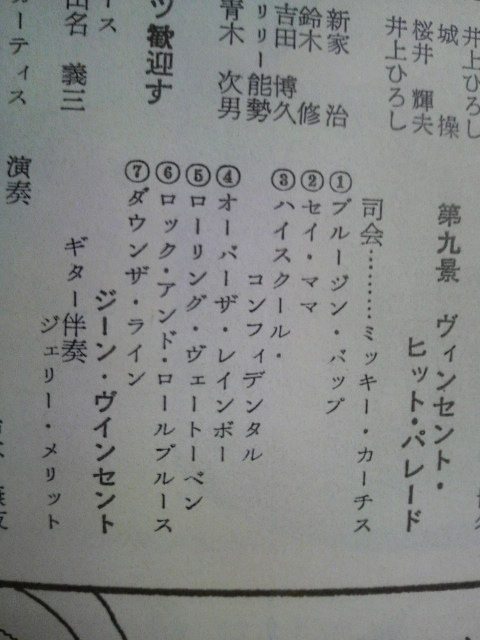 井上ひろし
城　操
桜井　輝夫
井上ひろし
新家　治
鈴木　修
吉田　博久
リリー能勢
青木　次男
ツ歓迎す
ース
田名　義三
ーティス
第九景　ヴィンセント・
ヒット・パレード
司会………ミッキー・カーチス
①ブルージン・バップ
②セイ・ママ
③ハイスクール・
コンフィデンタル
④オーバーザ・レインボー
⑤ローリング・ヴェートーベン
⑥ロック・アンド・ロールブルース
⑦ダウンザ・ライン
ジーン・ヴインセント
ギター伴奏
ジェリー・メリット
演奏